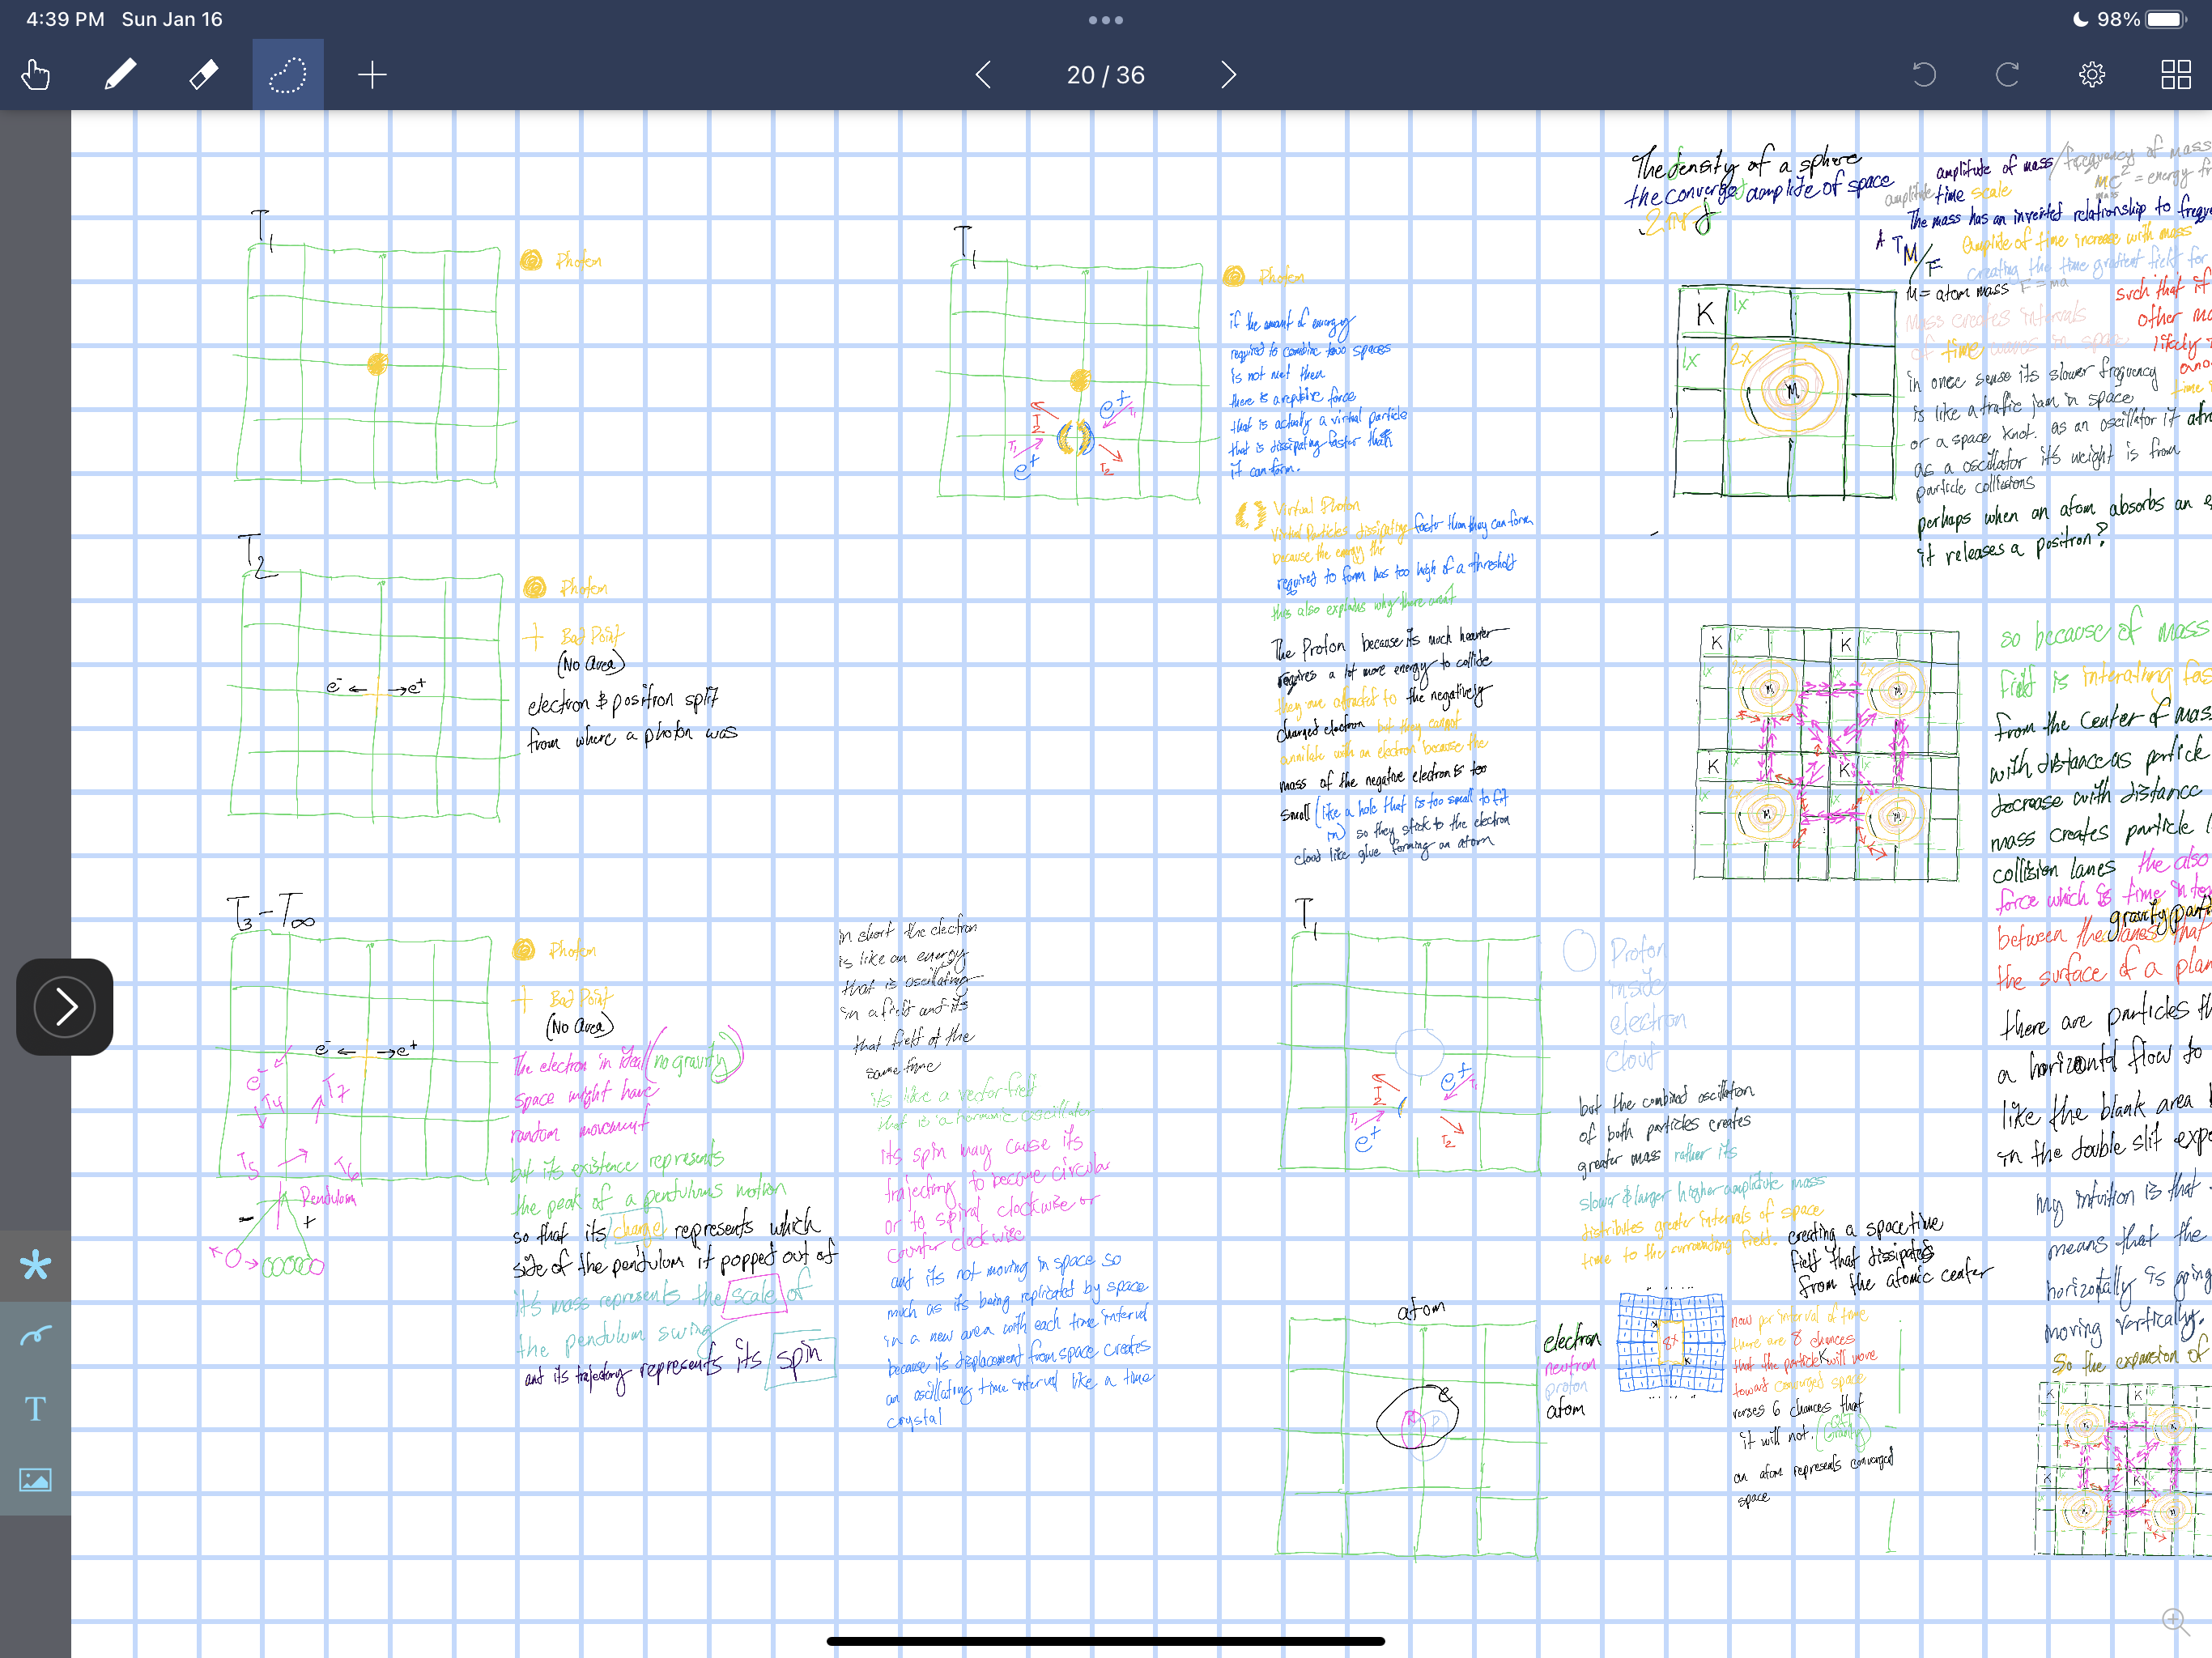 4:39 PM Sun Jan 16
98%
20 / 36
T1
Photon
T2
Photon
Bad Point
(No Area)
electron & positron split
from where a photon was
e- ← → e+
T3 - T∞
Photon
Bad Point
(No Area)
e- ← → e+
e-
T4
T7
T5
T6
Pendulum
- +
The electron in ideal (no gravity)
space might have
random movement
but its existence represents
the peak of a pendulums motion
so that its charge represents which
side of the pendulum it popped out of
it's mass represents the scale of
the pendulum swing
and its trajectory represents its spin
in short the electron
is like an energy
that is oscillating
in a field and its
that field at the
same time
its like a vector field
that is a harmonic oscillator
its spin may cause its
trajectory to become circular
or to spiral clockwise or
counter clockwise
and its not moving in space so
much as its being replicated by space
in a new area with each time interval
because its displacement from space creates
an oscillating time interval like a time
crystal
T1
Photon
e+
T1
T2
T1
e+
T2
if the amount of energy
required to combine two spaces
is not met then
there is a repulsive force
that is actually a virtual particle
that is dissipating faster than
it can form.
Virtual Photon
Virtual Particles dissipating faster than they can form
because the energy thr
required to form has too high of a threshold
this also explains why there arent
The Proton because its much heavier
requires a lot more energy to collide
they are attracted to the negatively
charged electron but they cannot
annilate with an electron because the
mass of the negative electron is too
small (like a hole that is too small to fit
in) so they stick to the electron
cloud like glue forming an atom
T1
Proton
inside
electron
cloud
e+
T1
T2
T1
e+
T2
but the combined oscillation
of both particles creates
greater mass rather its
slower & larger higher amplitude mass
distributes greater intervals of space
time to the surrounding field. creating a spacetime
field that dissipates
from the atomic center
atom
e
N P
electron
neutron
proton
atom
8x
K
now per interval of time
there are 8 chances
that the particle K will move
toward converged space
verses 6 chances that
it will not. (Gravity)
an atom represents converged
space
The density of a sphere
the converged amplitude of space
amplitude of mass / frequency of mass
amplitude time scale
MC2 = energy
mass
The mass has an inverted relationship to
A T M/F
Amplitude of time increase with mass
creating the time gradient field for
M = atom mass F = ma
Mass creates intervals
of time waves in space
such that if
other
likely
in once sense its slower frequency
is like a trafic jam in space
or a space knot. as an oscillator it
as a oscillator its weight is from
particle collisions
perhaps when an atom absorbs an
it releases a positron?
K 1x
1x 2x
M
K 1x K 1x
1x 2x 1x 2x
M M
K 1x K 1x
1x 2x 1x 2x
M M
so because of mass
field is interacting
from the center of mass
with distance as particle
decrease with distance
mass creates particle
collision lanes the also
force which is time
gravity
between the lanes that
the surface of a
there are particles
a horizontal flow to
like the blank area
in the double slit
my intuition is that
means that the
horizontally is going
moving vertically.
So the expansion of
K K
M M
K K
M M
T